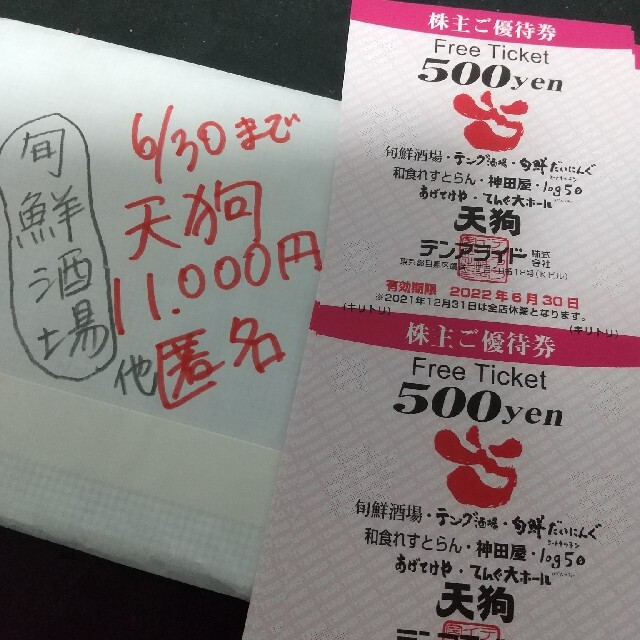 旬鮮酒場
6/30まで
天狗
11.000円
他匿名
株主ご優待券
Free Ticket
500yen
旬鮮酒場・テング酒場・旬鮮だいにんぐ
和食れすとらん・神田屋・log50
あげてけや・てんぐ大ホール
天狗
テンアライド株式会社
有効期限 2022年6月30日
※2021年12月31日は全店休業となります。
(キリトリ) (キリトリ)
株主ご優待券
Free Ticket
500yen
旬鮮酒場・テング酒場・旬鮮だいにんぐ
和食れすとらん・神田屋・log50
あげてけや・てんぐ大ホール
天狗